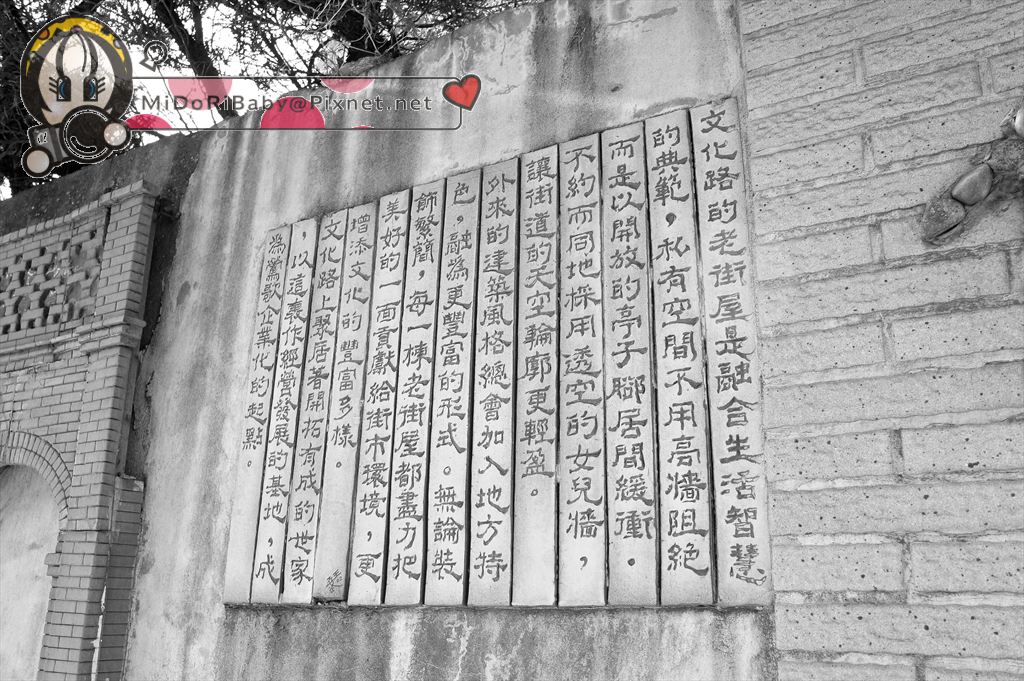 MiDoRiBaby@Pixnet.net
文化路的老街屋是融合生活智慧
的典範，私有空間不用高牆阻絕
而是以開放的亭子腳居間緩衝。
不約而同地採用透空的女兒牆，
讓街道的天空輪廓更輕盈。
外來的建築風格總會加入地方特
色。融為更豐富的形式。無論裝
飾繁簡，每一棟老街屋都盡力把
美好的一面貢獻給街市環境，更
增添文化的豐富多樣。
文化路上聚居著開拓有成的世家
，以這義作經營發展的基地，成
為鶯歌企業化的起點。